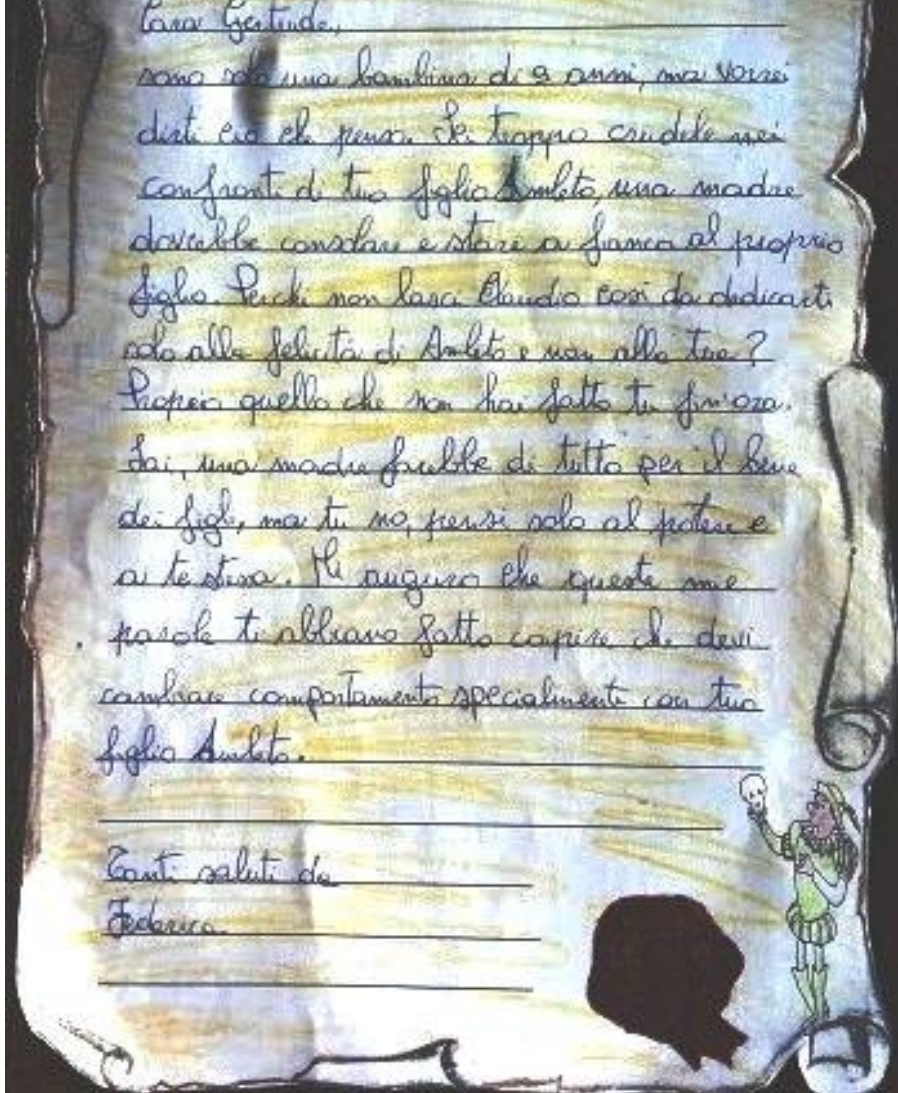 Cara Gertrude,
sono solo una bambina di 9 anni, ma vorrei
dirti ciò che penso. Sei troppo crudele nei
confronti di tuo figlio Amleto, una madre
dovrebbe consolare e stare a fianco al proprio
figlio. Perché non lasci Claudio così da dedicarti
solo alla felicità di Amleto e non alla tua?
Proprio quello che non hai fatto tu finora.
Sai, una madre farebbe di tutto per il bene
dei figli, ma tu no, pensi solo al potere e
a te stessa. Mi auguro che queste mie
parole ti abbiano fatto capire che devi
cambiare comportamento specialmente con tuo
figlio Amleto.
Tanti saluti da
Federica